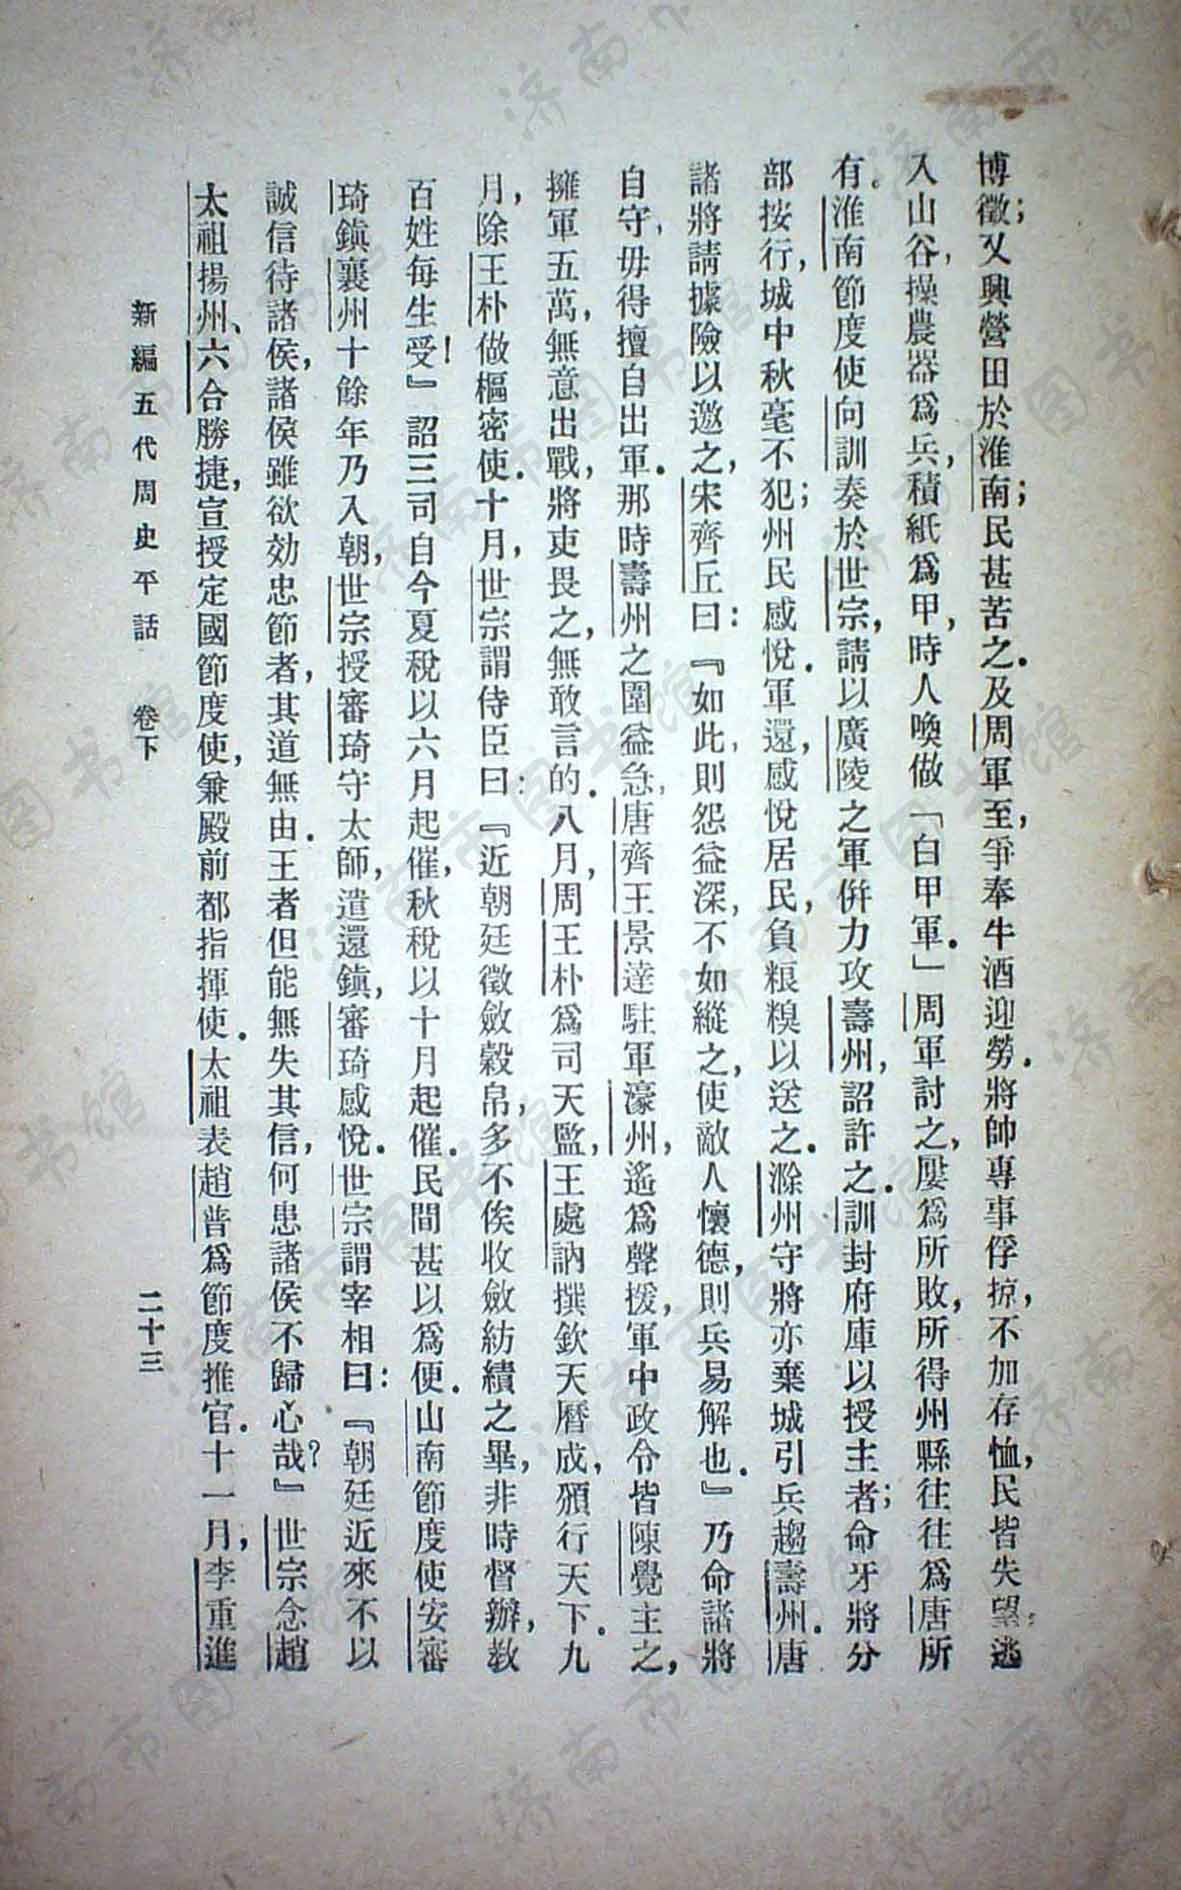 博徵；又興營田於淮南；民甚苦之．及周軍至，爭奉牛酒迎勞．將帥專事俘掠，不加存恤，民皆失望；逃
入山谷，操農器爲兵，積紙爲甲，時人喚做「白甲軍．」周軍討之，屢爲所敗，所得州縣往往爲唐所
有。淮南節度使向訓奏於世宗，請以廣陵之軍併力攻壽州，詔許之．訓封府庫以授主者；命牙將分
部按行，城中秋毫不犯；州民感悅．軍還，感悅居民，負粮糗以送之．滁州守將亦棄城引兵趨壽州．唐
諸將請據險以邀之，宋齊丘曰：『如此，則怨益深，不如縱之，使敵人懷德，則兵易解也．』乃命諸將
自守，毋得擅自出軍．那時壽州之圍益急，唐齊王景達駐軍濠州，遙爲聲援，軍中政令皆陳覺主之，
擁軍五萬，無意出戰，將吏畏之，無敢言的．八月，周王朴爲司天監，王處訥撰欽天曆成，頒行天下．九
月，除王朴做樞密使．十月，世宗謂侍臣曰：『近朝廷徵斂穀帛，多不俟收斂紡績之畢，非時督辦，教
百姓每生受！』詔三司自今夏稅以六月起催，秋稅以十月起催．民間甚以爲便．山南節度使安審
琦鎮襄州十餘年乃入朝，世宗授審琦守太師，遣還鎮，審琦感悅．世宗謂宰相曰：『朝廷近來不以
誠信待諸侯，諸侯雖欲効忠節者，其道無由．王者但能無失其信，何患諸侯不歸心哉？』世宗念趙
太祖揚州、六合勝捷，宣授定國節度使，兼殿前都指揮使．太祖表趙普爲節度推官．十一月，李重進
新編五代周史平話　卷下　二十三
济南市图书馆